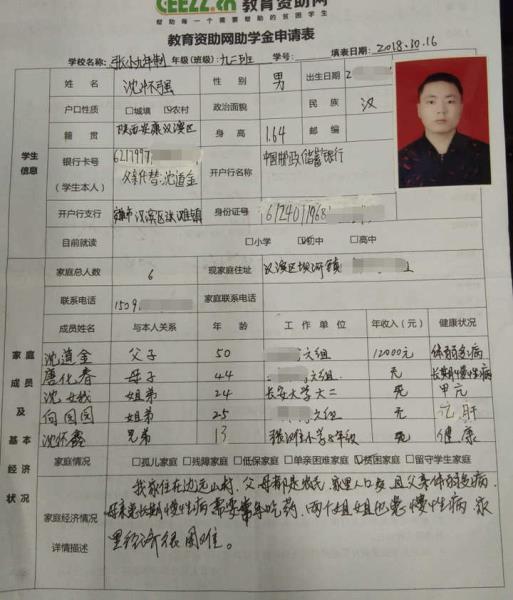 CEE22.cn 教育资助网
帮助每一个需要帮助的贫困学生
教育资助网助学金申请表
学校名称: 张小九年制 年级(班级): 九二班 学号: 填表日期: 2018.10.16
姓 名 沈怀强 性 别 男 出生日期 2
户口性质 □城填 ☑农村 政治面貌 民 族 汉
籍 贯 陕西安康汉滨区 身 高 1.64 邮 编
学生信息
银行卡号 6217997 开户行名称 中国邮政储蓄银行
(学生本人) 父亲代替:沈道金
开户行支行 汉滨区 滩镇 身份证号 612401968
目前就读 □小学 ☑初中 □高中
家庭总人数 6 现家庭住址 汉滨区坝河镇
联系电话 1509 家庭联系电话
成员姓名 与本人关系 年 龄 工 作 单 位 年收入(元) 健康状况
沈道金 父子 50 六组 12000元 体弱多病
唐化春 母子 44 六组 无 长期慢性病
沈女娥 姐弟 24 长安大学大二 无 甲亢
向园园 姐弟 25 六组 无 乙肝
沈怀鑫 兄弟 13 张滩小学8年级 无 健康
家庭成员及基本经济状况
家庭情况 □孤儿家庭 □残障家庭 □低保家庭 □单亲困难家庭 ☑贫困家庭 □留守学生家庭
家庭经济情况详情描述
我家住在边远山村,父母都是农民,家里人口多且父亲体弱多病,
母亲患长期慢性病需要常年吃药,两个姐姐也患慢性病,家
里经济很困难。